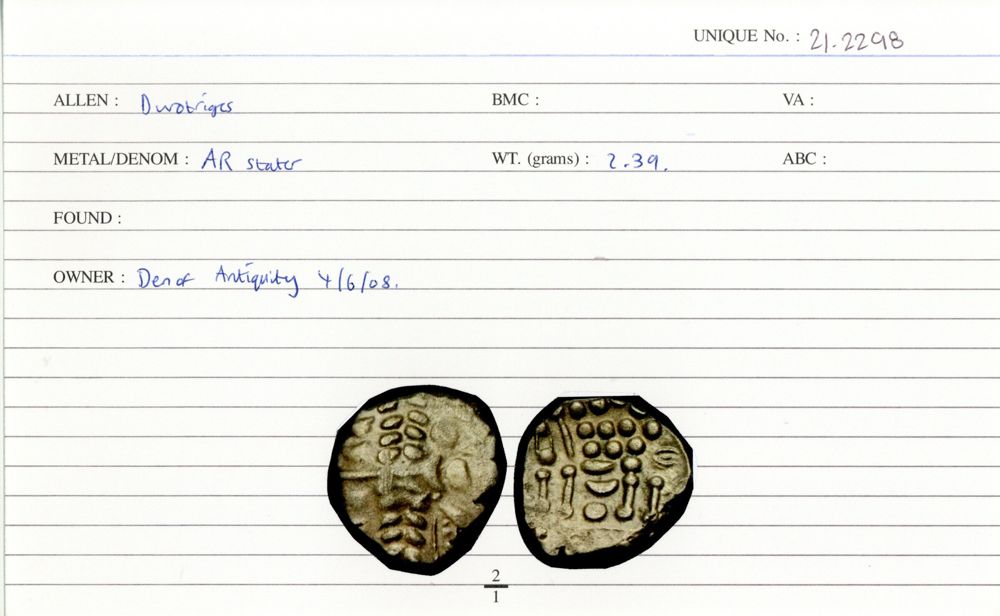 UNIQUE No. : 21.2298
ALLEN : Durotriges BMC : VA :
METAL/DENOM : AR stater WT. (grams) : 2.39. ABC :
FOUND :
OWNER : Den of Antiquity 4/6/08.
2
1